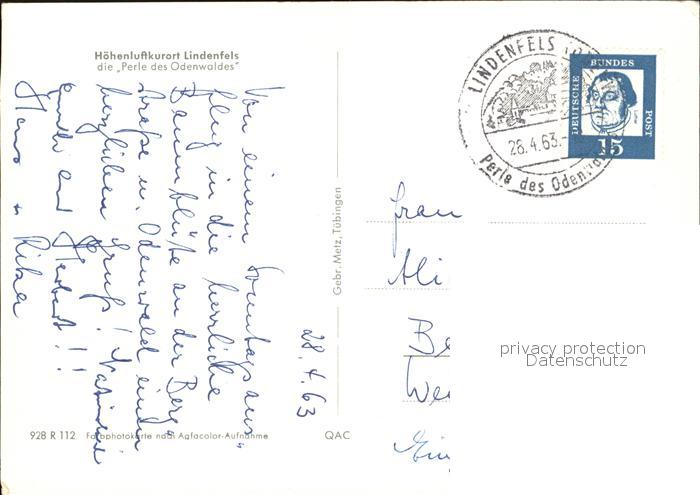 Höhenluftkurort Lindenfels
die „Perle des Odenwaldes"
Von einem Sonntagsaus-
flug in die herrliche
Baumblüte an der Berg-
straße u. Odenwald einen
herzlichen Gruß!
auch an Herbert!!
Hans u.
28.4.63
Gebr. Metz, Tübingen
928 R 112 Farbphotokarte nach Agfacolor-Aufnahme QAC
LINDENFELS
28.4.63.-
Perle des Odenwal
DEUTSCHE
BUNDES
POST
15
Frau
Ali
Be
We
Ein
privacy protection
Datenschutz